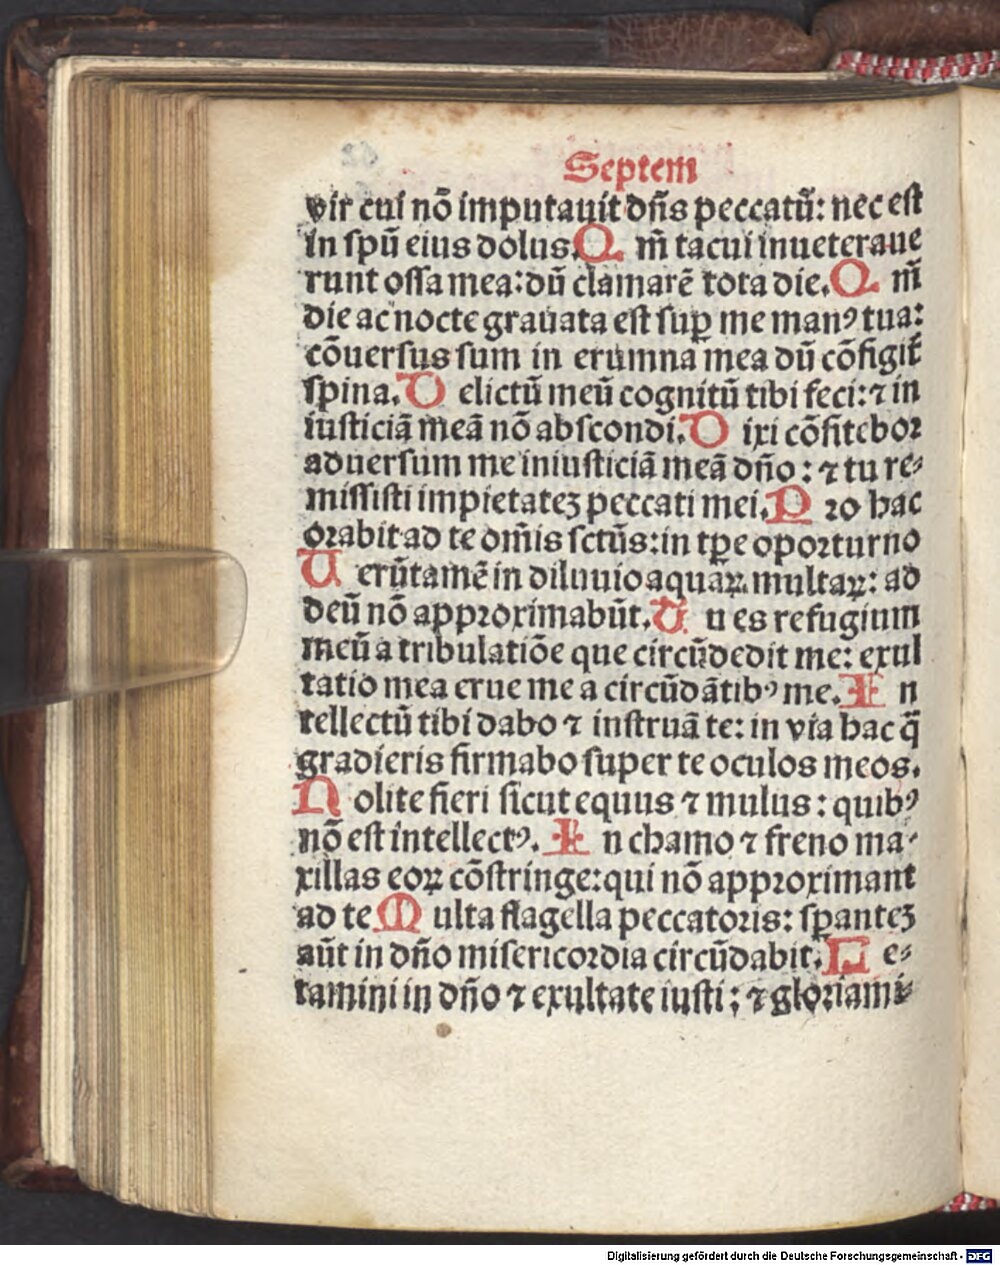 Septem
vir cui nō imputauit dn̄s peccatū: nec est
in spū eius dolus. Q m̄ tacui inueteraue
runt ossa mea: dū clamarē tota die. Q m̄
die ac nocte grauata est sup̱ me manꝰ tua:
cōuersus sum in erumna mea dū cōfigit̄
spina. D elictū meū cognitū tibi feci: ⁊ in
iusticiā meā nō abscondi. D ixi cōfitebor
aduersum me iniusticiā meā dn̄o: ⁊ tu re⸗
missisti impietateꝫ peccati mei. P ro hac
orabit ad te om̄is sctūs: in tp̄e oporturno
V erūtamē in diluuio aquaꝝ multaꝝ: ad
deū nō approximabūt. T u es refugium
meū a tribulatiōe que circūdedit me: exul
tatio mea erue me a circūdātibꝰ me. I n
tellectū tibi dabo ⁊ instruā te: in via hac q̄
gradieris firmabo super te oculos meos.
N olite fieri sicut equus ⁊ mulus: quibꝰ
nō est intellectꝰ. I n chamo ⁊ freno ma⸗
xillas eoꝝ cōstringe: qui nō approximant
ad te M ulta flagella peccatoris: sp̱anteꝫ
aūt in dn̄o misericordia circūdabit. L e⸗
tamini in dn̄o ⁊ exultate iusti: ⁊ gloriami⸗
Digitalisierung gefördert durch die Deutsche Forschungsgemeinschaft - DFG